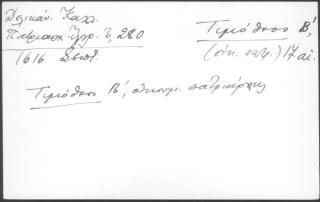 Δελικάν. Κατα.
Πατριαρχ. Έγγρ. 3, 280
1616 Σεπτ.
Τιμόθεος Β΄,
(οἰκ. πατρ.) 17 αἰ.
Τιμόθεος Β΄, οἰκουμ. πατριάρχης